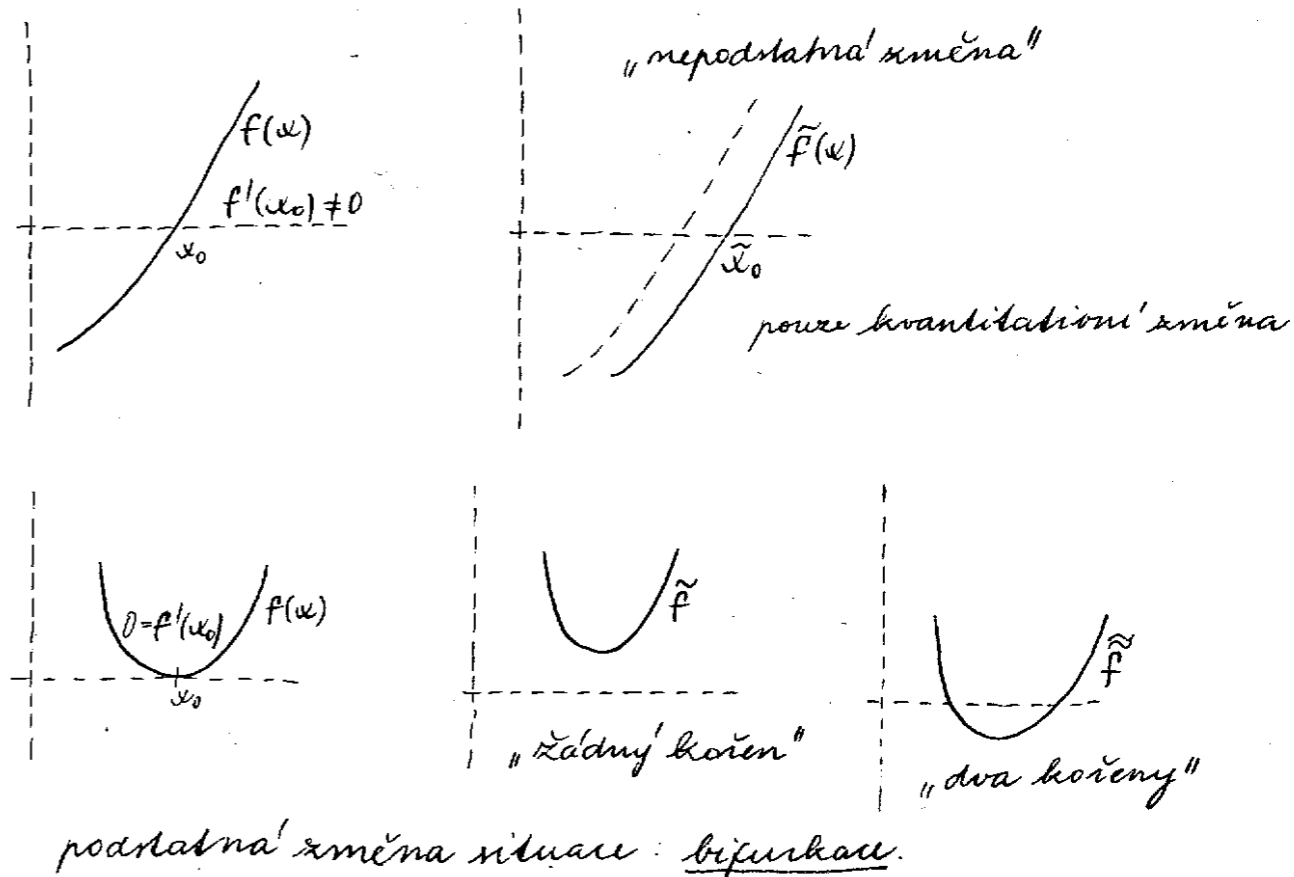 „nepodstatná změna"
f(x)
f̃(x)
f'(x₀) ≠ 0
x₀
x̃₀
pouze kvantitativní změna
0=f'(x₀)
f(x)
x₀
f̃
„žádný kořen"
f̃̃
„dva kořeny"
podstatná změna situace : bifurkace.